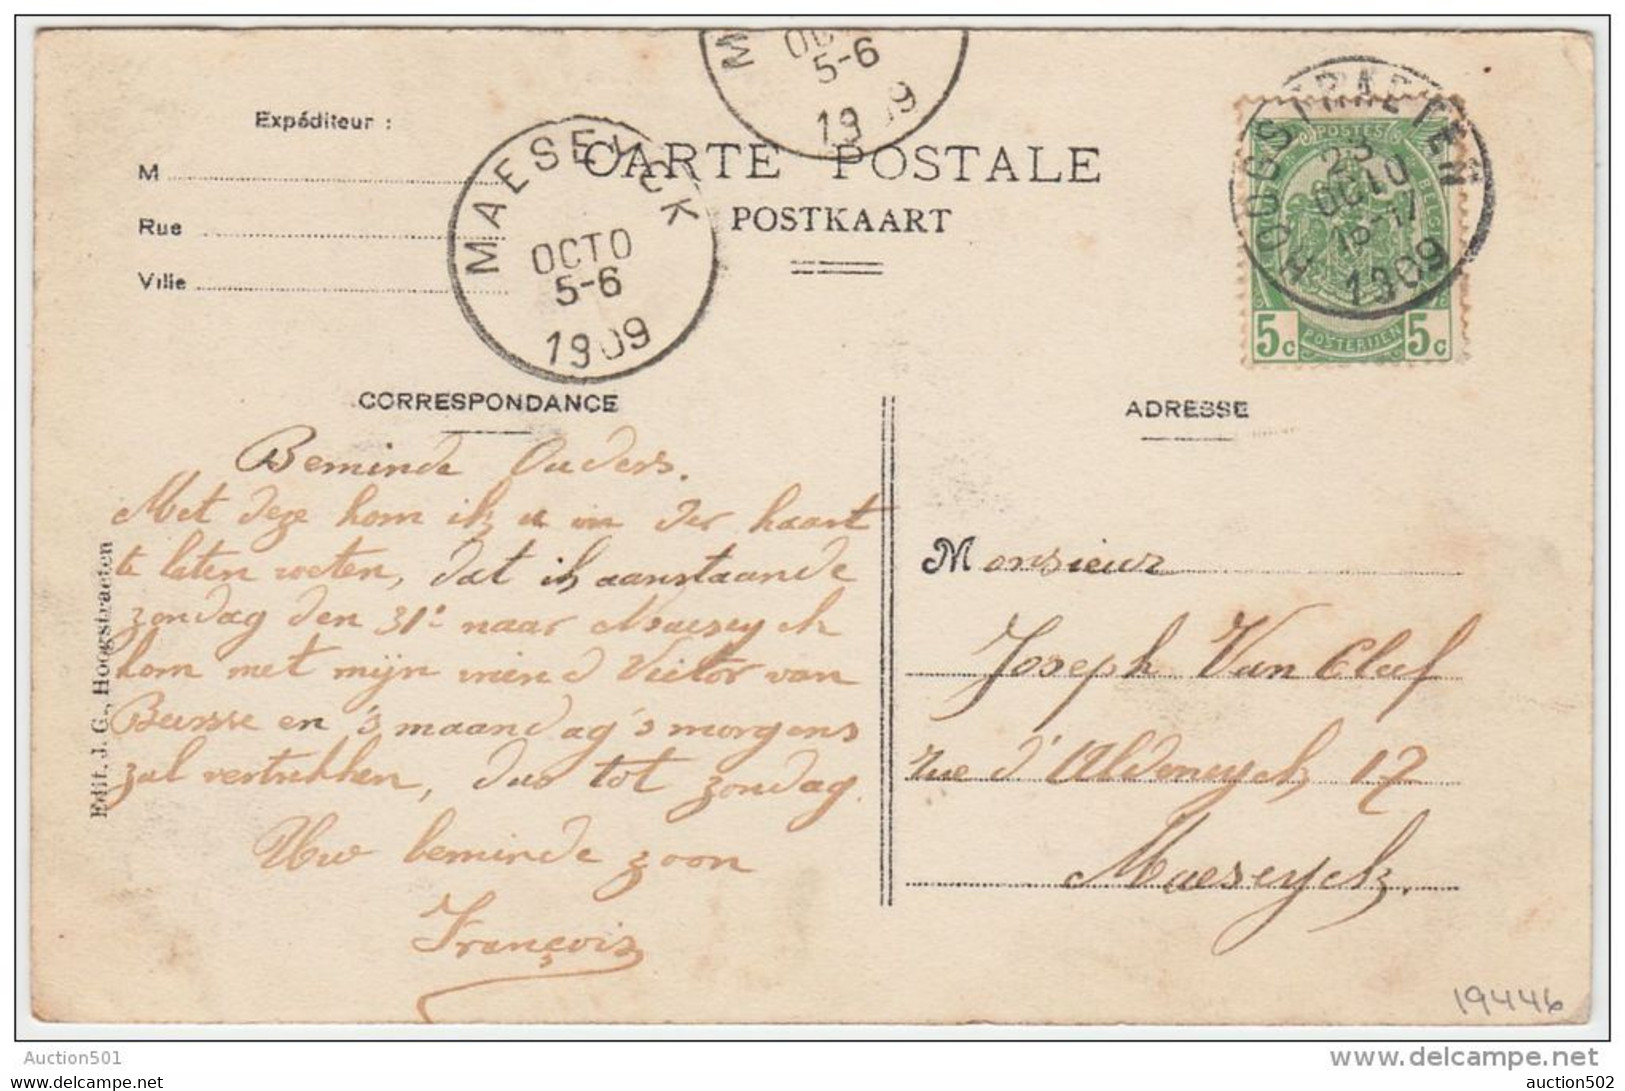 M
OC
5-6
1909
Expéditeur :
M
Rue
Ville
MAESEYCK
OCTO
5-6
1909
CARTE POSTALE
POSTKAART
HOOGSTRAETEN
OCTO
16-17
1909
POSTES
BELGI
5c POSTERIJEN 5c
CORRESPONDANCE
ADRESSE
Beminde Ouders.
Met deze kom ik u in der haart
te laten weten, dat ik aanstaande
zondag den 31e naar Maeseyck
kom met mijn vriend Victor van
Beersse en 's maandag's morgens
zal vertrekken, dus tot zondag.
Uw beminde zoon
François
Monsieur
Joseph Van Cleef
rue d'Aldeneyck 17
Maeseyck.
Edit. J. G., Hoogstraeten
19446
Auction501
www.delcampe.net
www.delcampe.net
auction502